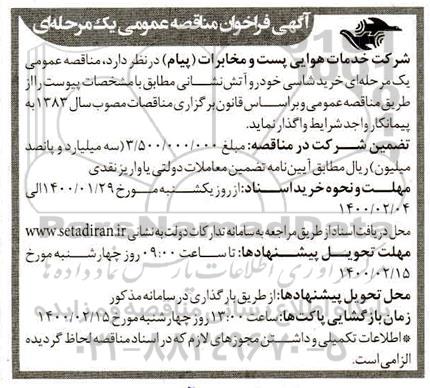 آگهی فراخوان مناقصه عمومی یک مرحله‌ای
شرکت خدمات هوایی پست و مخابرات (پیام) در نظر دارد، مناقصه عمومی
یک مرحله‌ای خرید شاسی خودرو آتش نشانی مطابق با مشخصات پیوست را از
طریق مناقصه عمومی و بر اساس قانون برگزاری مناقصات مصوب سال ۱۳۸۳ به
پیمانکار واجد شرایط واگذار نماید.
تضمین شرکت در مناقصه: مبلغ ۳/۵۰۰/۰۰۰/۰۰۰ (سه میلیارد و پانصد
میلیون) ریال مطابق آیین نامه تضمین معاملات دولتی یا واریز نقدی
مهلت و نحوه خرید اسناد: از روز یکشنبه مورخ ۱۴۰۰/۰۱/۲۹ الی
۱۴۰۰/۰۲/۰۴
محل دریافت اسناد از طریق مراجعه به سامانه تدارکات دولت به نشانی www.setadiran.ir
مهلت تحویل پیشنهادها: تا ساعت ۰۹:۰۰ روز چهارشنبه مورخ
۱۴۰۰/۰۲/۱۵
محل تحویل پیشنهادها: از طریق بارگذاری در سامانه مذکور
زمان بازگشایی پاکت‌ها: ساعت ۱۳:۰۰ روز چهارشنبه مورخ ۱۴۰۰/۰۲/۱۵
* اطلاعات تکمیلی و داشتن مجوزهای لازم که در اسناد مناقصه لحاظ گردیده
الزامی است.
۰۲۱-۸۸۳۴۹۶۷۰-۵